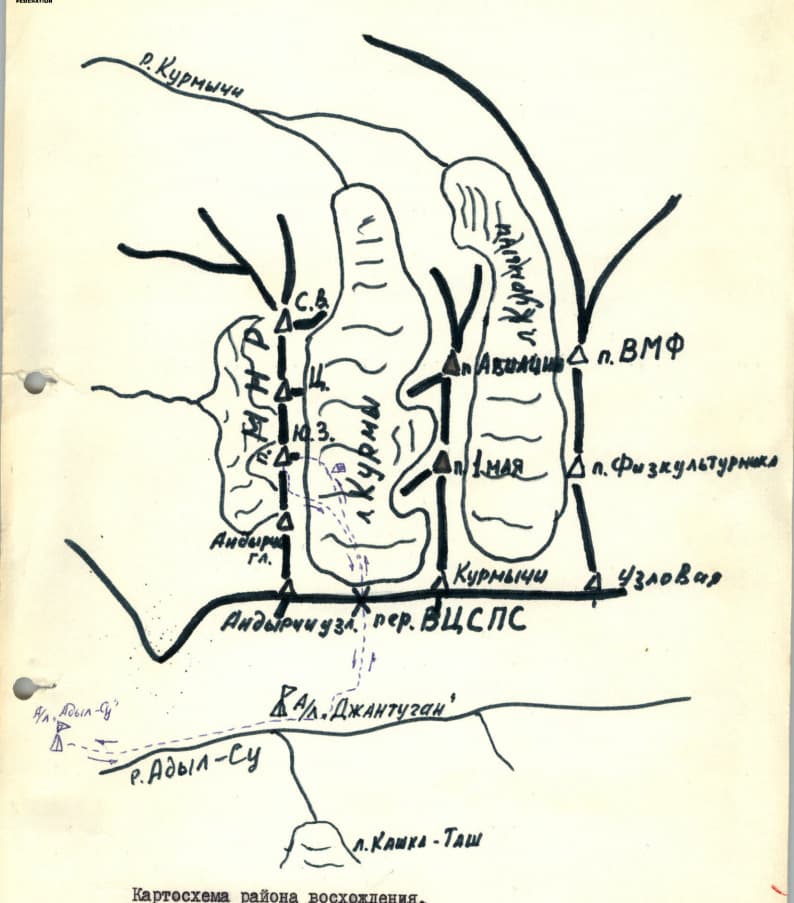 FEDERATION
р. Курмычи
л. Курмычи
С.В.
п. ВМФ
п. Авиации
Ц.
МНР
Ю.З.
л. Курмы
п. 1 мая
п. Физкультурника
Андырчи
гл.
Курмычи
Узловая
Андырчи узл.
пер. ВЦСПС
А/л „Адыл-Су"
А/л „Джантуган"
р. Адыл-Су
л. Кашка-Таш
Картосхема района восхождения.